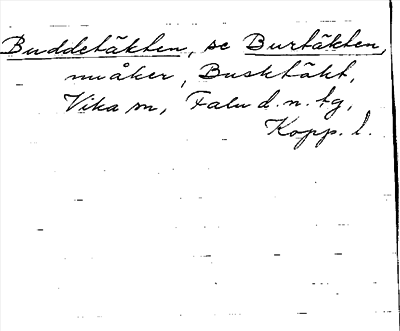 Buddetäkten, se Burtäkten,
nuåker, Busktäkt,
Vika sn, Falu d. n. tg,
Kopp. l.